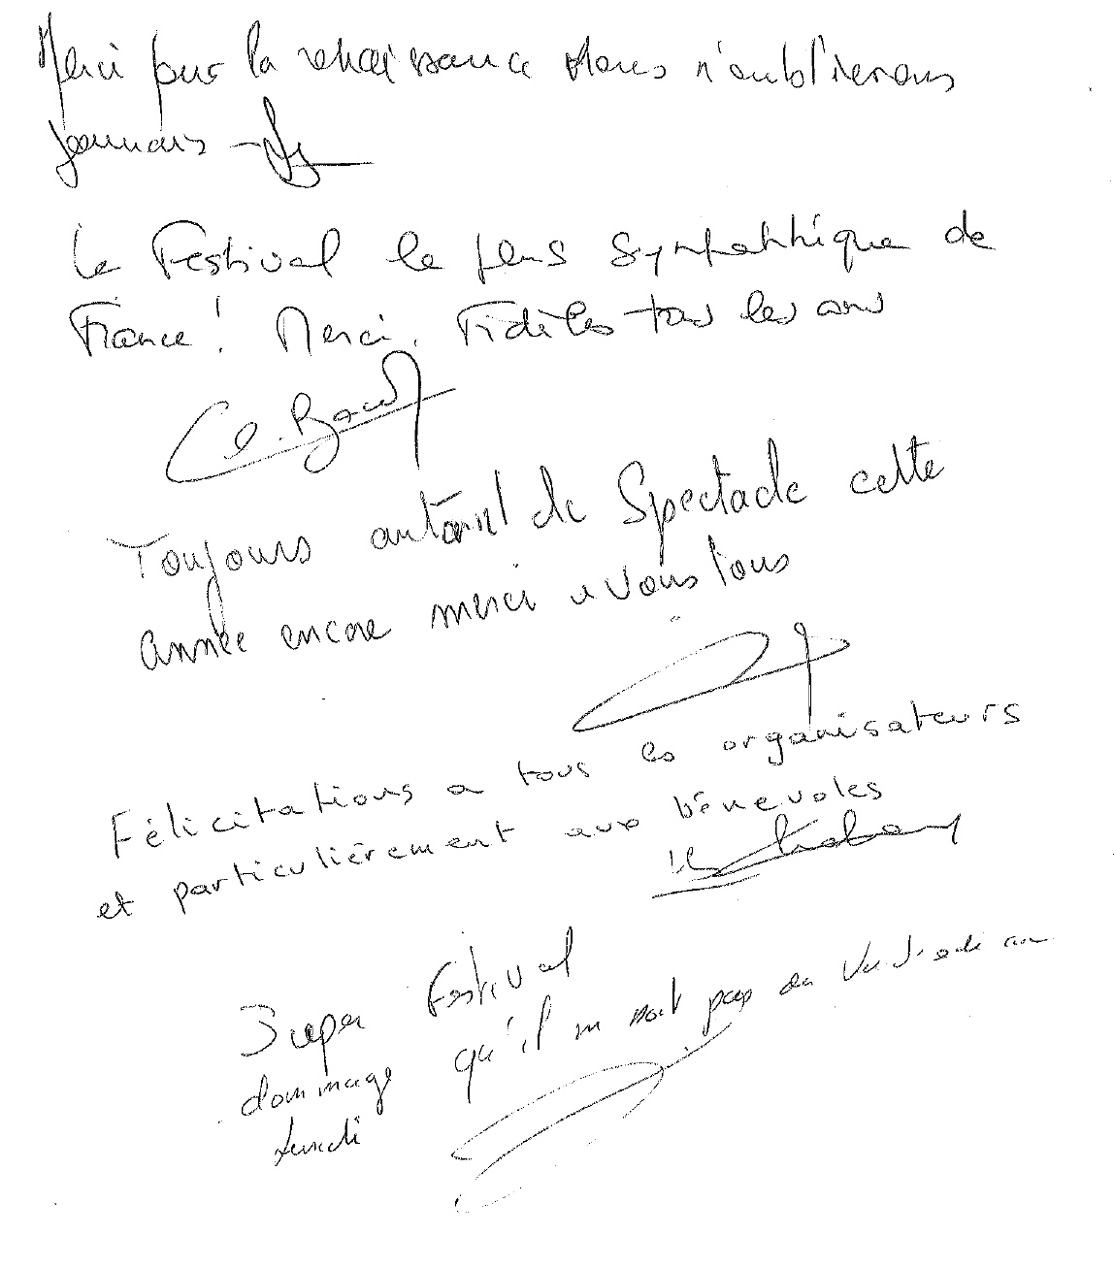 Merci pour la renaissance Nous n'oublierons
jamais
Le Festival le plus sympathhique de
France! Merci. Fidèles tous les ans
Toujours autant de Spectacle cette
année encore merci a vous tous
Félicitations a tous les organisateurs
et particulièrement aux bénevoles
Super Festival
dommage qu'il ne soit pas du Vendredi au
Lundi